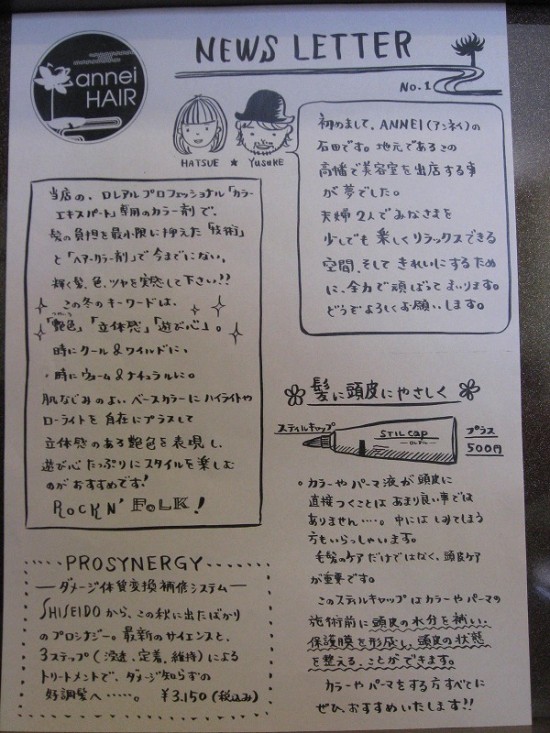 annei
HAIR
NEWS LETTER
No.1
HATSUE ★ Yusuke
初めまして、ANNEI(アンネイ)の
石田です。地元であるこの
高幡で美容室を出店する事
が夢でした。
夫婦2人でみなさまを
少しでも楽しくリラックスできる
空間、そしてきれいにするため
に、全力で頑ばってまいります。
どうぞよろしくお願いします。
当店の、ロレアルプロフェッショナル「カラー
エキスパート」専用のカラー剤で、
髪の負担を最小限に抑えた「技術」
と「ヘアーカラー剤」で今までにない、
輝く髪、色、ツヤを実感して下さい!!
この冬のキーワードは、
「艶色」「立体感」「遊び心」。
時にクール&ワイルドに、
・時にウォーム&ナチュラルに。
肌なじみのよいベースカラーにハイライトや
ローライトを自在にプラスして
立体感のある艶色を表現し、
遊び心たっぷりにスタイルを楽しむ
のがおすすめです!
ROCKN' FOLK!
髪に頭皮にやさしく
スティルキャップ
STILCAP
プラス
500円
。カラーやパーマ液が頭皮に
直接つくことはあまり良い事では
ありません…。中にはしみてしまう
方もいらっしゃいます。
毛髪のケアだけではなく、頭皮ケア
が重要です。
このスティルキャップはカラーやパーマの
施術前に頭皮の水分を補い、
保護膜を形成し、頭皮の状態
を整える、ことができます。
カラーやパーマをする方すべてに
ぜひ、おすすめいたします!!
PROSYNERGY
―ダメージ体質変換補修システム―
SHISEIDOから、この秋に出たばかり
のプロシナジー。最新のサイエンスと、
3ステップ(浸透、定着、維持)による
トリートメントで、ダメージ知らずの
好調髪へ……。 ¥3.150(税込み)